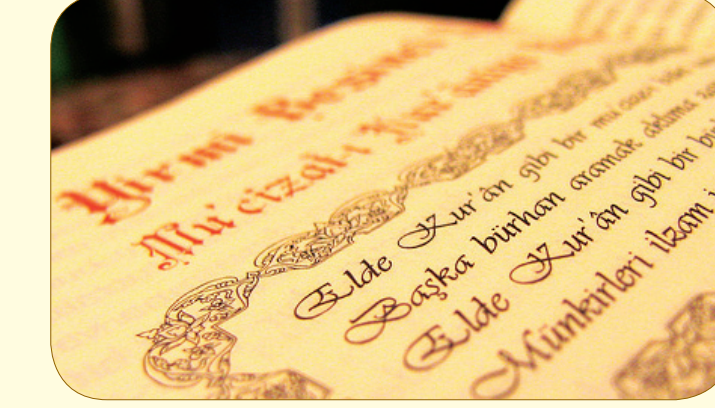 Yirmi Beşinci
Mu'cizat-ı Kur'âniye
Elde Kur'ân gibi bir mu'cize
Başka bürhan aramak aklıma
Elde Kur'ân gibi bir
Münkirleri ilzam